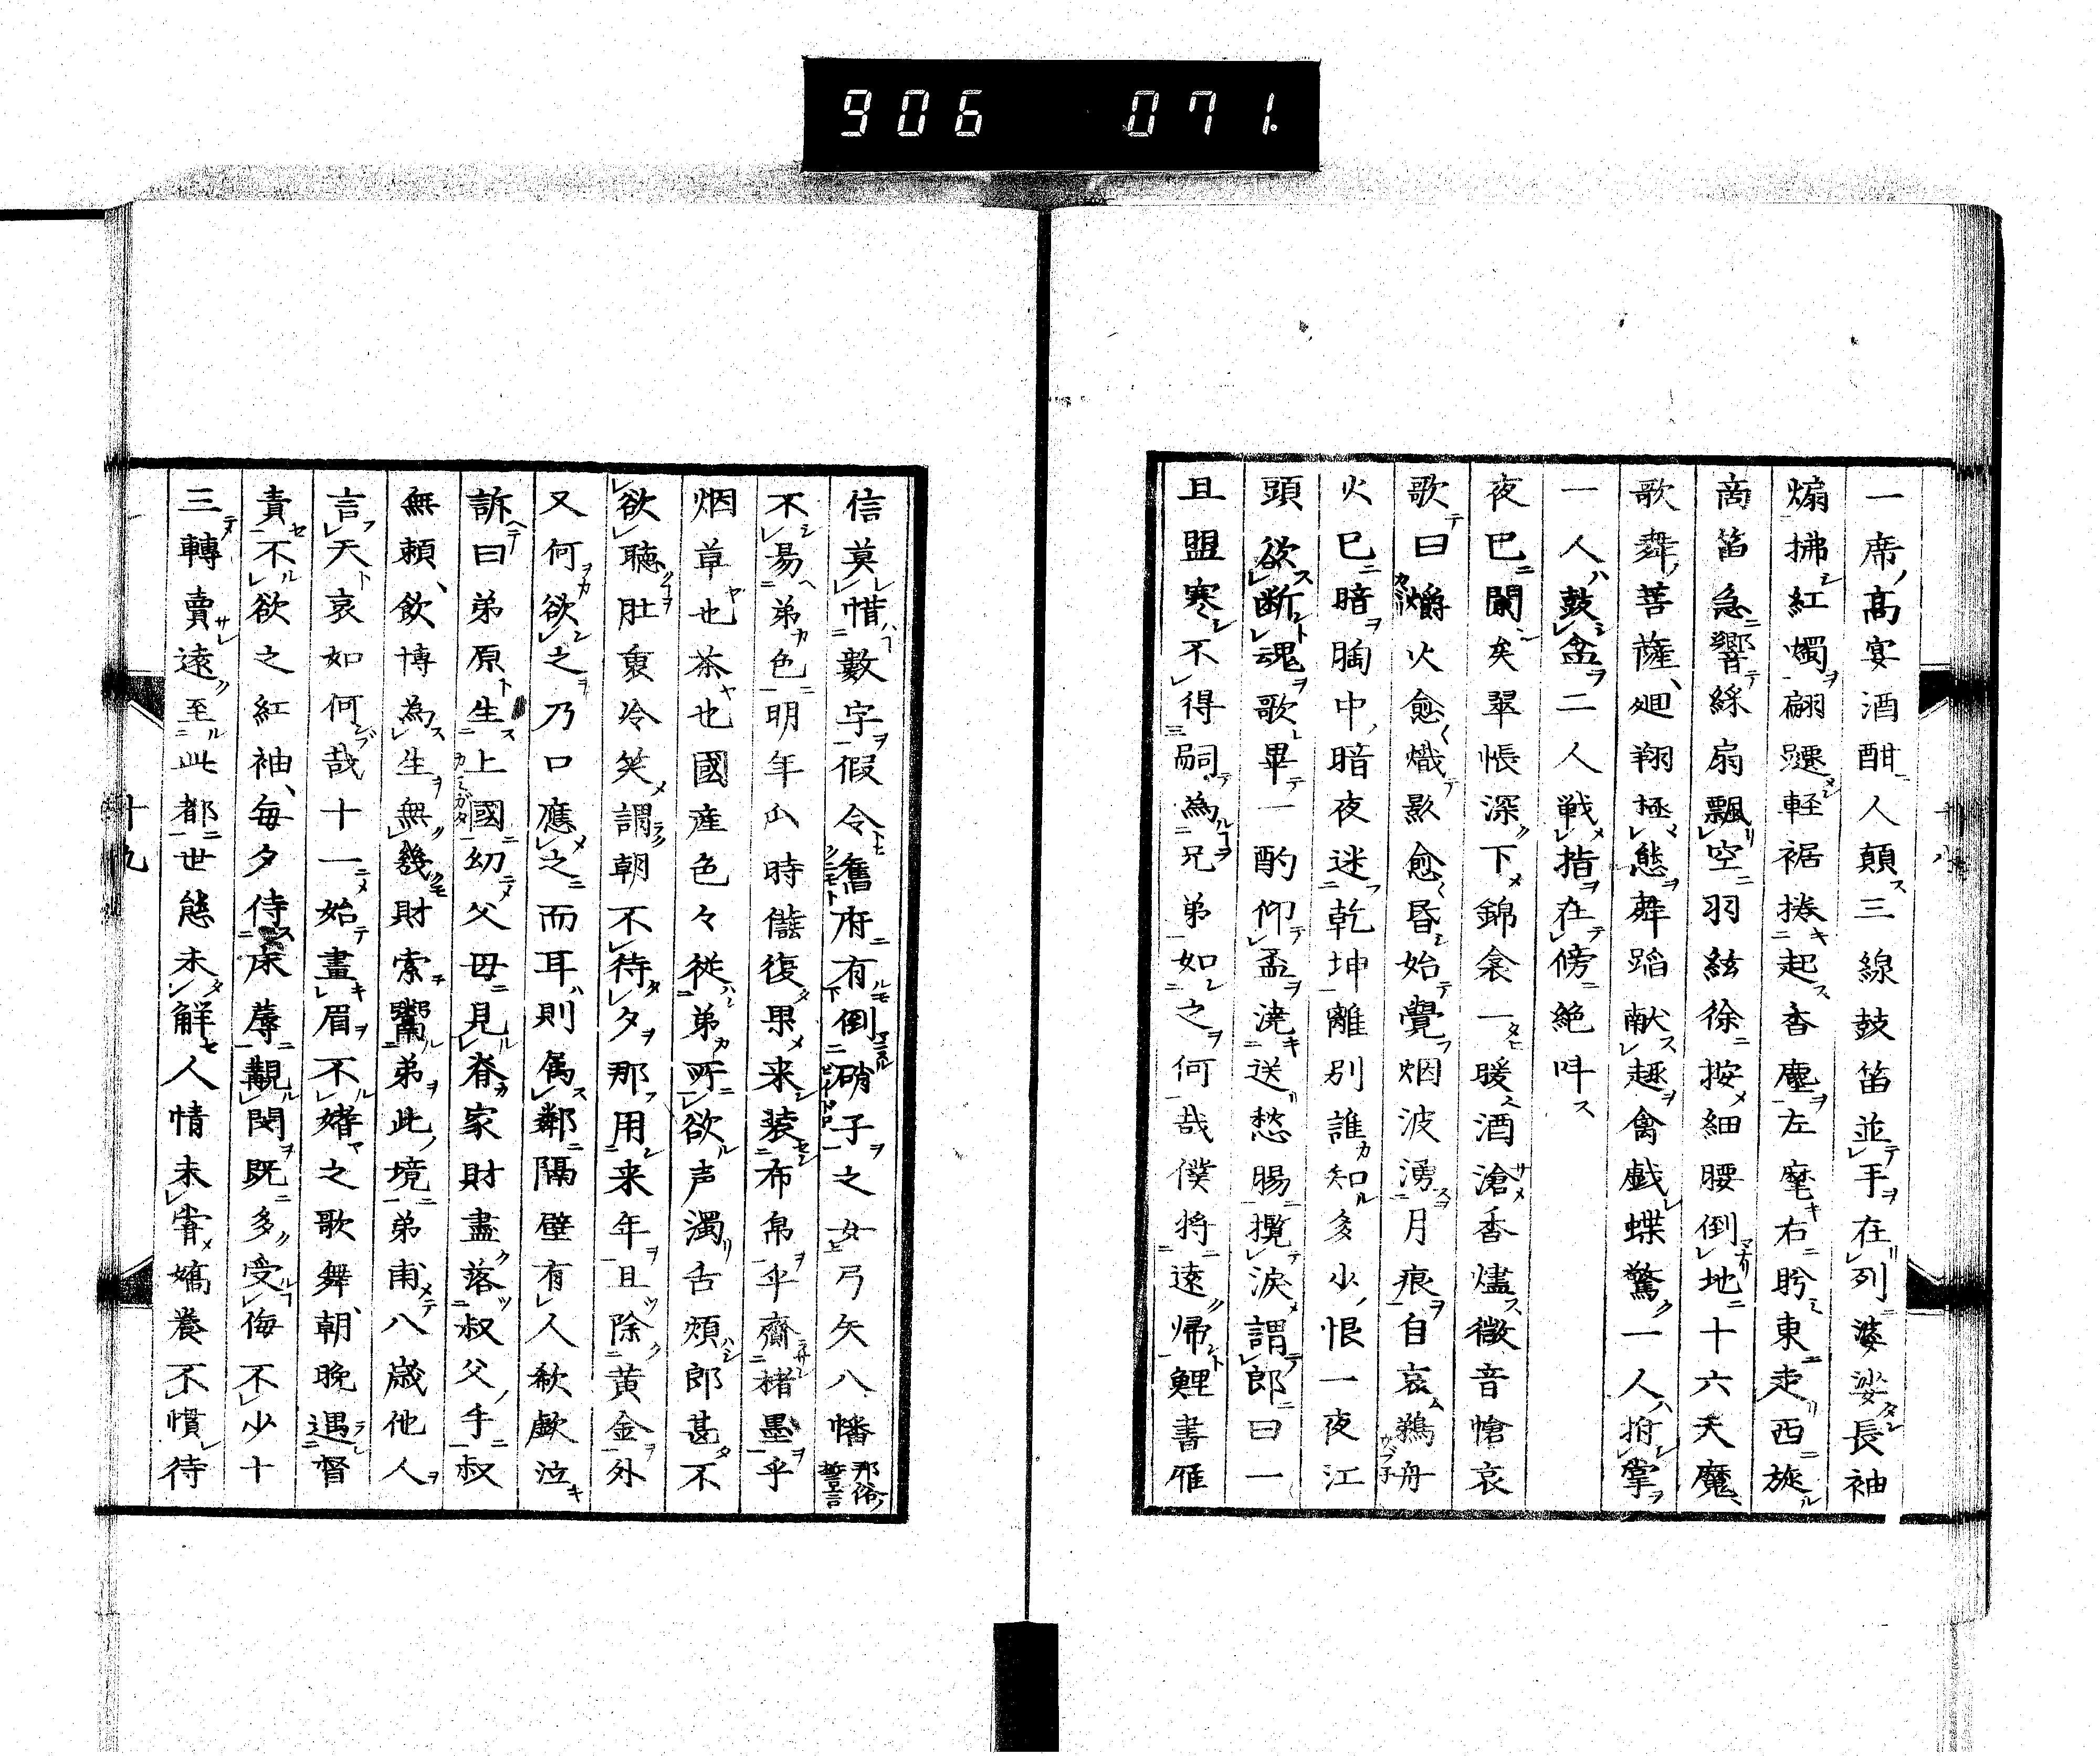 906 071.
一席高宴酒酣人顛三線鼓笛並手在列婆娑長袖
煽拂紅燭翩躚軽裾捲起香塵左麾右眄東走西旋
商笛急響綵扇飄空羽絃徐按細腰倒地十六天魔
歌舞菩薩廻翔極態舞蹈献趣禽戯蝶驚一人拊掌
一人鼓盆二人戦指在傍絶叫
夜已闌矣翠帳深下錦衾一暖酒滄香燼微音愴哀
歌曰爝火愈熾影愈昏始覺烟波湧月痕自哀鵜舟
火已暗胸中暗夜迷乾坤離別誰知多少恨一夜江
頭欲断魂歌畢一酌仰盃澆送愁腸攬涙謂郎曰一
且盟寒不得嗣為兄弟如之何哉僕将遠帰鯉書雁
十八
信莫惜數字假令舊府有倒硝子之女弓矢八幡那俗誓言
不易弟色明年公時讎復果来装布帛傘齋楮墨乎
烟草也茶也國産色々從弟所欲声濁舌煩郎甚不
欲聴肚裏冷笑謂朝不待夕那用来年且除黄金外
又何欲之乃口應之而耳則属鄰隔壁有人欷歔泣
訴曰弟原生上國幼父母見脊家財盡落叔父手叔
無頼飲博為生無幾財索鬻弟此境弟甫八歳他人
言天哀如何哉十一始畫眉不嗜之歌舞朝晩遇督
責不欲之紅袖毎夕侍床辱覯閔既多受侮不少十
三轉賣遠至此都世態未解人情未嘗嬌養不慣待
十九